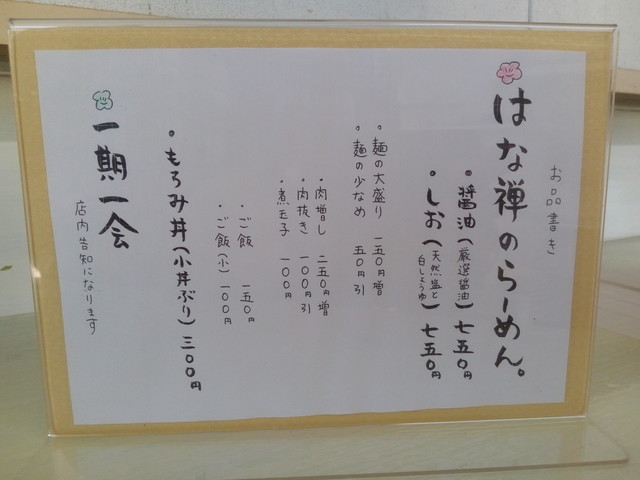 お品書き
はな禅のらーめん。
・醤油(厳選醤油)七五〇円
・しお(天然塩と白しょうゆ)七五〇円
・麺の大盛り 一五〇円増
・麺の少なめ 五〇円引
・肉増し 二五〇円増
・肉抜き 一〇〇円引
・煮玉子 一〇〇円
・ご飯 一五〇円
・ご飯(小)一〇〇円
・もろみ丼(小丼ぶり)三〇〇円
一期一会
店内告知になります